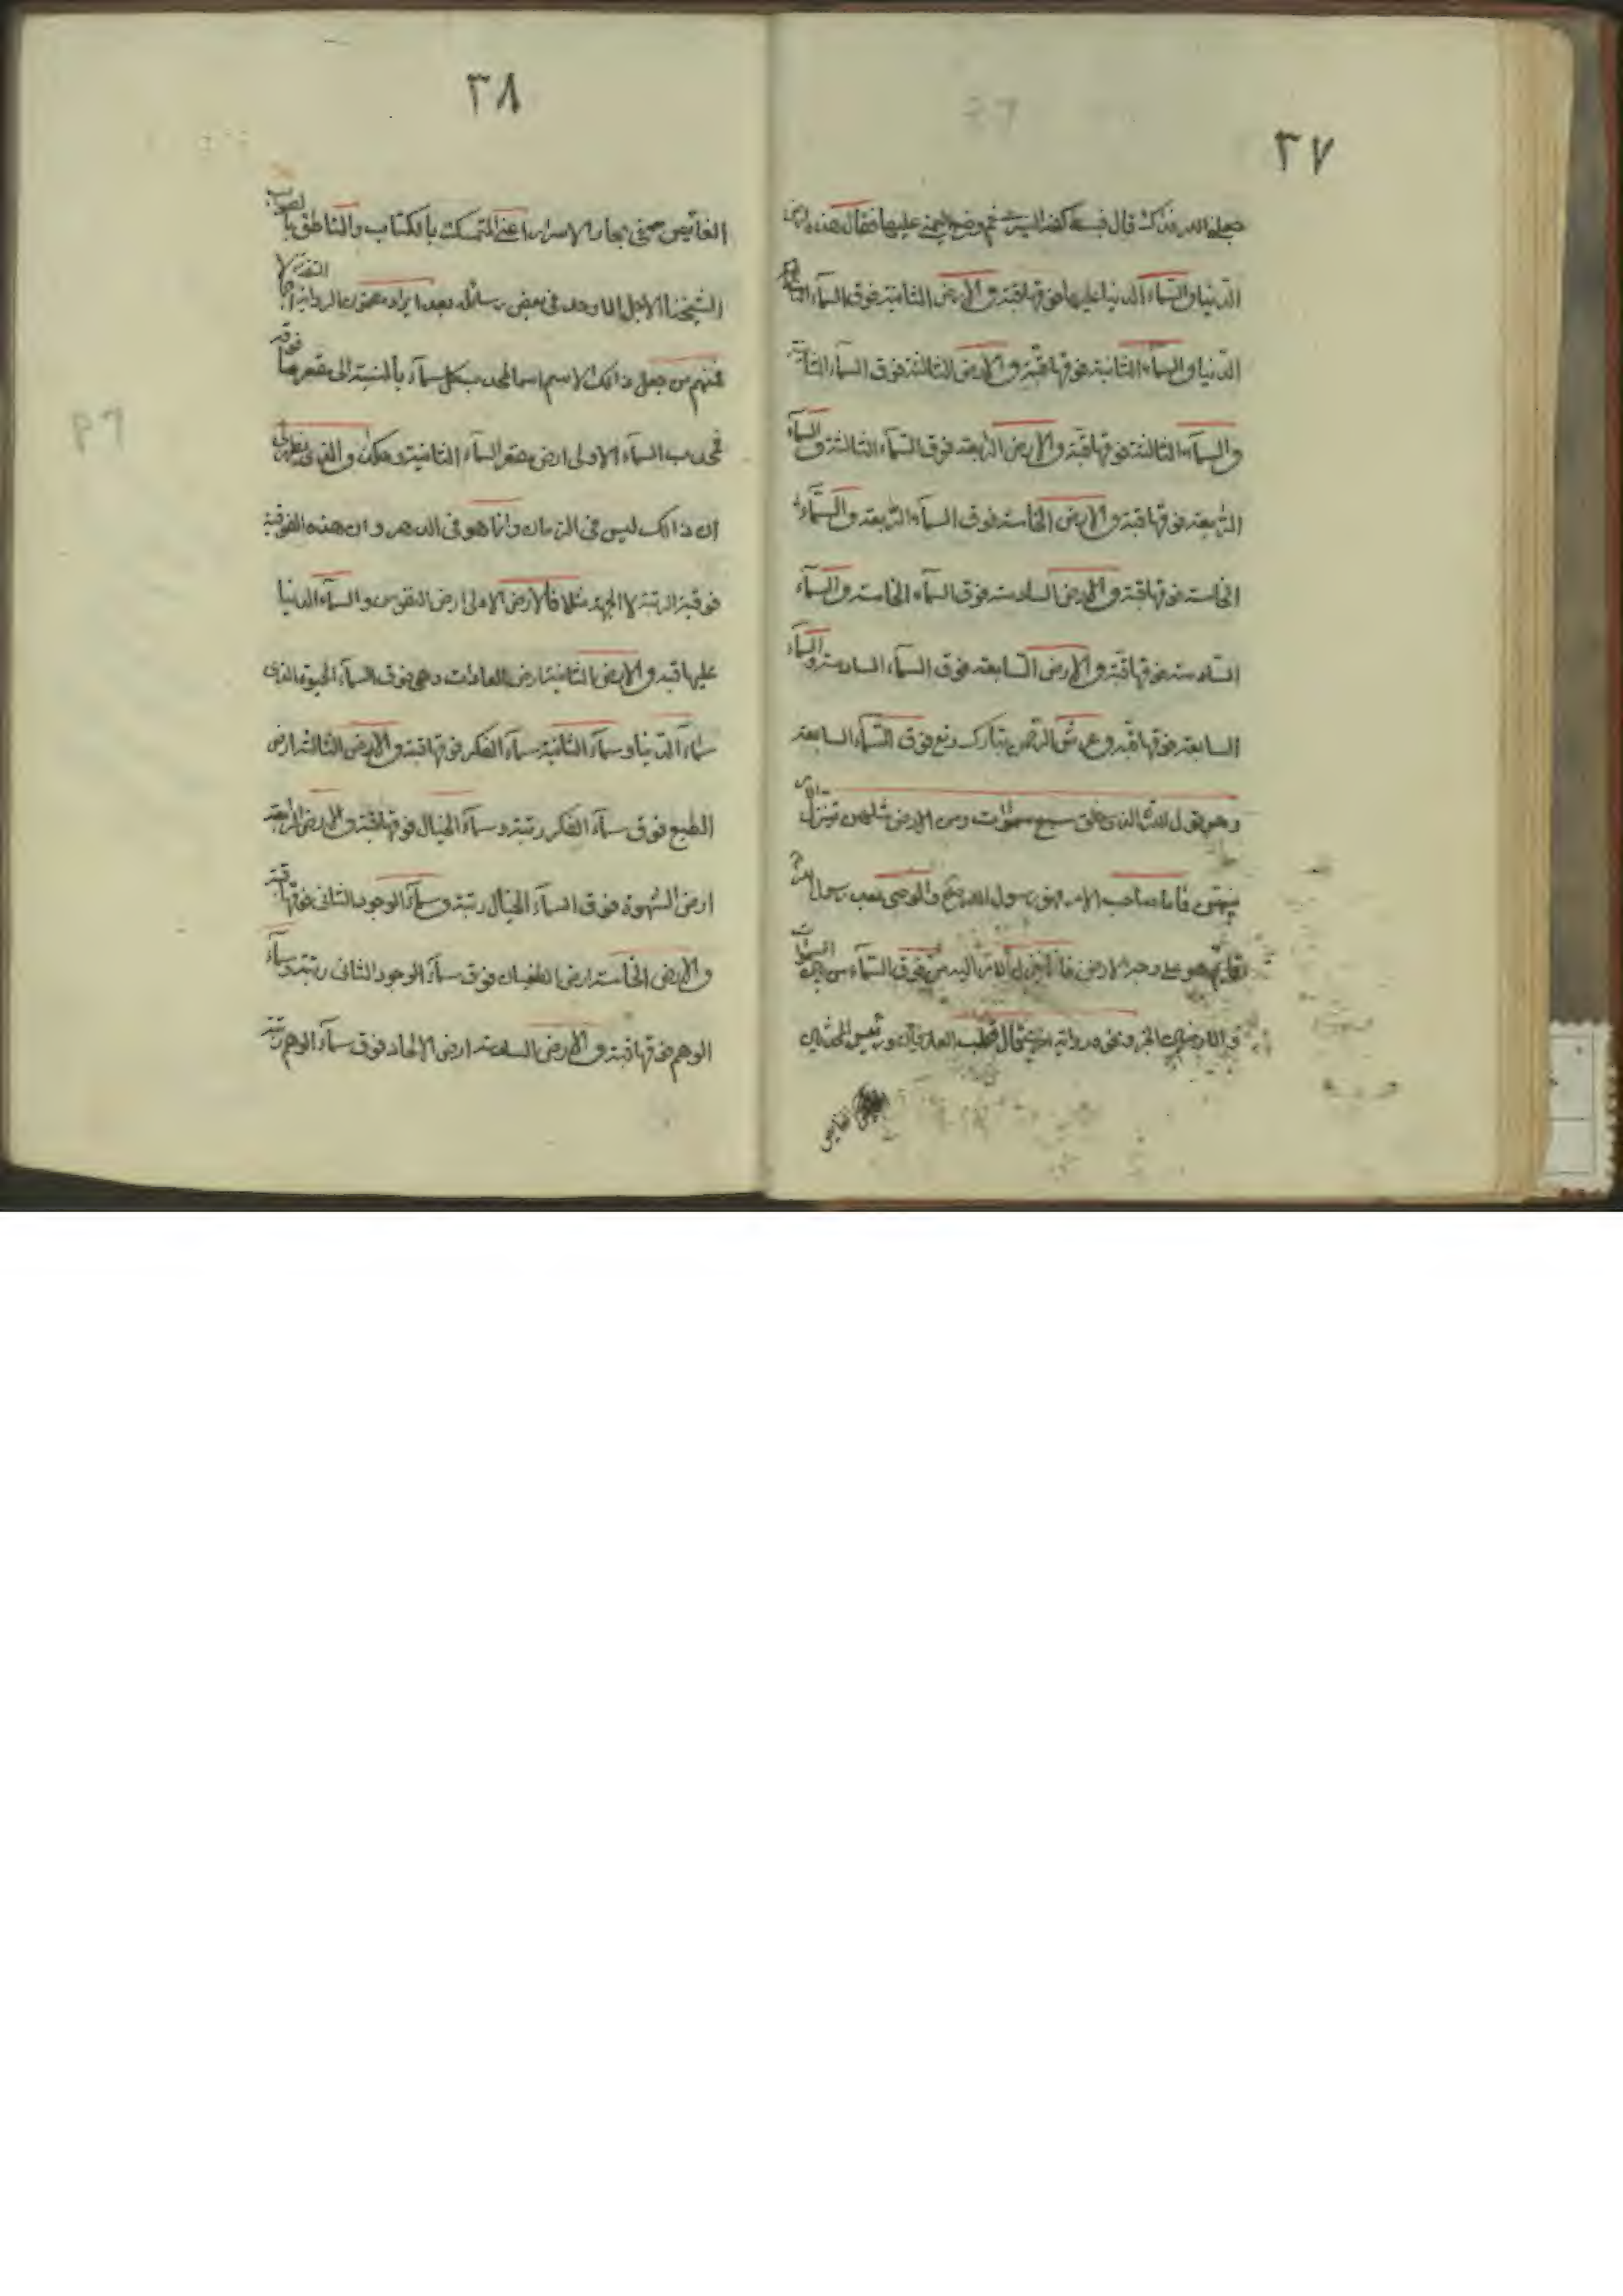 ٣٧
جعلني الله فداك قال فبسط كفه اليسرى ثم وضع اليمنى عليها فقال هذه ارض
الدنيا والسماء الدنيا عليها فوقها قبة والارض الثانية فوق السماء
الدنيا والسماء الثانية فوقها قبة والارض الثالثة فوق السماء الثانية
والسماء الثالثة فوقها قبة والارض الرابعة فوق السماء الثالثة والسماء
الرابعة فوقها قبة والارض الخامسة فوق السماء الرابعة والسماء
الخامسة فوقها قبة والارض السادسة فوق السماء الخامسة والسماء
السادسة فوقها قبة والارض السابعة فوق السماء السادسة والسماء
السابعة فوقها قبة وعرش الرحمن تبارك وتع فوق السماء السابعة
وهو قول الله الذي خلق سبع سموات ومن الارض مثلهن يتنزل الامر
بينهن فاما صاحب الامر فهو رسول الله والوصي بعد رسول الله
قائم هو على وجه الارض فانما يتنزل الامر اليه من فوق السماء من بين السموات
والارضين الخبر ونحوه رواية قال قطب العارفين ورئيس
الغايص
٣٨
الغايص في بحار الاسرار اعني المتمسك بالكتاب والناطق بالصواب
الشيخنا الاجل الاوحد في بعض رسائله بعد ايراد هذه الرواية
فمنهم من جعل ذالك الاسم اسما لمحدب كل سماء بالنسبة الى مقعر ما فوقه
فمحدب السماء الاولى ارض مقعر السماء الثانية وهكذا والذي يظهر لي
ان ذالك ليس في الزمان وانما هو في الدهر وان هذه الفوقية
فوقية الرتبة لا الجهة مثلا فالارض الاولى ارض النفوس والسماء الدنيا
عليها قبة والارض الثانية ارض العادات وهي فوق السماء الحيوة الذي
سماء الدنيا وسماء الثانية سماء الفكر فوقها قبة والارض الثالثة ارض
الطبع فوق سماء الفكر رتبة وسماء الخيال فوقها قبة والارض الرابعة
ارض الشهوة فوق السماء الخيال رتبة وسماء الوجود الثاني فوقها قبة
والارض الخامسة ارض الطغيان فوق سماء الوجود الثاني رتبة وسماء
الوهم فوقها قبة والارض السادسة ارض الالحاد فوق سماء الوهم رتبة